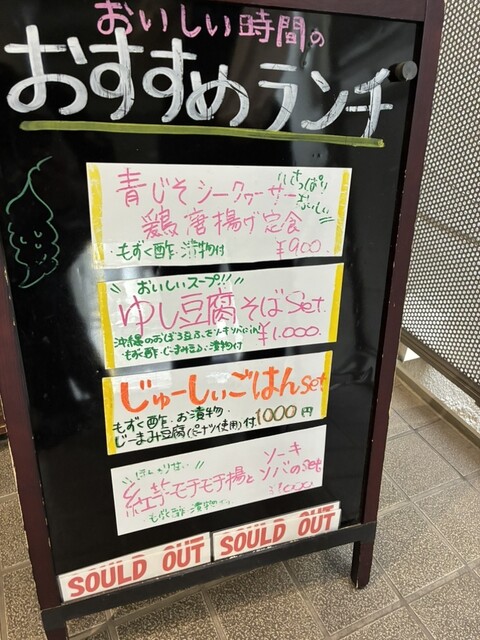 おいしい時間の
おすすめランチ
青じそシークヮーサー さっぱり おいしい
鶏唐揚げ定食
もずく酢・漬物付 ¥900
おいしいスープ!!
ゆし豆腐そばSet
¥1.000.
もずく酢・じーまみ豆腐・漬物付
じゅーしぃごはんset
もずく酢・お漬物・
じーまみ豆腐(ピーナツ使用)付 1000円
紅芋モチモチ揚と ソーキ
ソバのset
もずく酢・漬物付 ¥1000
SOULD OUT
SOULD OUT